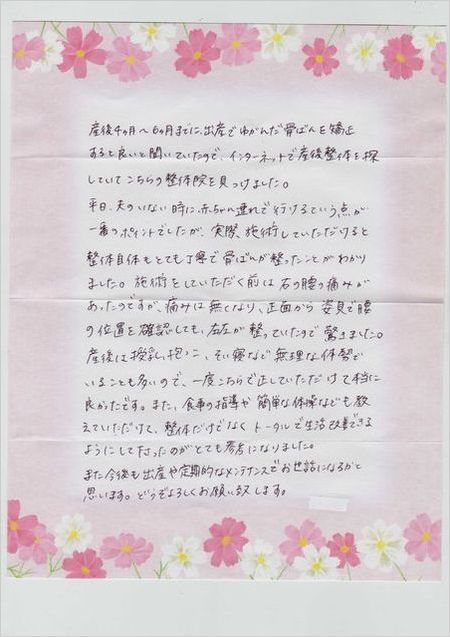 産後4ヶ月〜6ヶ月までに、出産でゆがんだ骨ばんを矯正
すると良いと聞いていたので、インターネットで産後整体を探
していてこちらの整体院を見つけました。
平日、夫のいない時に、赤ちゃん連れで行けるという点が
一番のポイントでしたが、実際、施術していただけると
整体自体もとても丁寧で骨ばんが整ったことがわかり
ました。施術をしていただく前は右の腰の痛みが
あったのですが、痛みは無くなり、正面から姿見で腰
の位置を確認しても、左右が整っていたので驚きました。
産後は授乳、抱っこ、そい寝など無理な体勢で
いることも多いので、一度こちらで正していただけて本当に
良かったです。また、食事の指導や簡単な体操なども教
えていただけて、整体だけでなくトータルで生活改善できる
ようにして下さったのがとても参考になりました。
また今後も出産や定期的なメンテナンスでお世話になるかと
思います。どうぞよろしくお願い致します。